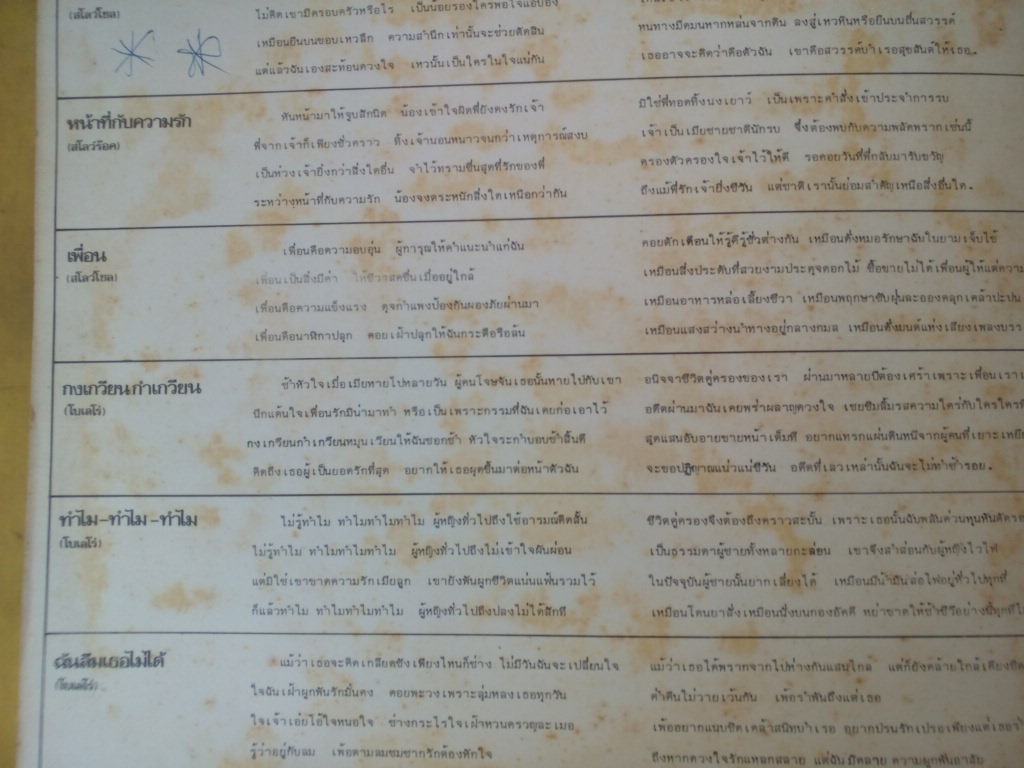 (สโลว์โซล)
ไม่คิดเขามีครอบครัวหรือไร เป็นน้อยรองใครพอใจแอบอิง
เหมือนยืนบนขอบเหวลึก ความสำนึกเท่านั้นจะช่วยตัดสิน
แต่แล้วฉันเองสะท้อนดวงใจ เหวนั้นเป็นใครในใจแน่กัน
หนทางมีดมนหากหล่นจากดิน ลงสู่เหวหินหรือยืนบนถิ่นสวรรค์
เธออาจจะคิดว่าคือตัวฉัน เขาคือสวรรค์บำเรอสุขสันต์ให้เธอ.
หน้าที่กับความรัก
(สโลว์ร๊อค)
หันหน้ามาให้จูบสักนิด น้องเข้าใจผิดพี่ยังคงรักเจ้า
พี่จากเจ้าก็เพียงชั่วคราว ทิ้งเจ้านอนหนาวจนกว่าเหตุการณ์สงบ
เป็นห่วงเจ้ายิ่งกว่าสิ่งใดอื่น จำไว้ทรามชื่นสุดที่รักของพี่
ระหว่างหน้าที่กับความรัก น้องจงตระหนักสิ่งใดเหนือกว่ากัน
มิใช่พี่ทอดทิ้งนงเยาว์ เป็นเพราะคำสั่งเข้าประจำการรบ
เจ้าเป็นเมียชายชาตินักรบ จึงต้องพบกับความพลัดพรากเช่นนี้
ครองตัวครองใจเจ้าไว้ให้ดี รอคอยวันที่พี่กลับมารับขวัญ
ถึงแม้พี่รักเจ้ายิ่งชีวัน แต่ชาติเรานั้นย่อมสำคัญเหนือสิ่งอื่นใด.
เพื่อน
(สโลว์โซล)
เพื่อนคือความอบอุ่น ผู้การุณให้คำแนะนำแก่ฉัน
เพื่อนเป็นสิ่งมีค่า ให้ชีวาสดชื่นเมื่ออยู่ใกล้
เพื่อนคือความแข็งแรง ดุจกำแพงป้องกันผองภัยผ่านมา
เพื่อนคือนาฬิกาปลุก คอยเฝ้าปลุกให้ฉันกระตือรือล้น
คอยตักเตือนให้รู้ดีรู้ชั่วต่างกัน เหมือนดั่งหมอรักษาฉันในยามเจ็บไข้
เหมือนสิ่งประดับที่สวยงามประดุจดอกไม้ ซื้อขายไม่ได้เพื่อนผู้ให้แต่ความ
เหมือนอาหารหล่อเลี้ยงชีวา เหมือนพฤกษาซับฝุ่นละอองคลุกเคล้าปะปน
เหมือนแสงสว่างนำทางอยู่กลางกมล เหมือนดั่งมนต์แห่งเสียงเพลงบรร
กงเกวียนกำเกวียน
(โบเลโร่)
ช้ำหัวใจเมื่อเมียหายไปหลายวัน ผู้คนโจษจันเธอนั้นหายไปกับเขา
นึกแค้นใจเพื่อนรักมีน่ามาทำ หรือเป็นเพราะกรรมที่ฉันเคยก่อเอาไว้
กงเกวียนกำเกวียนหมุนเวียนให้ฉันชอกช้ำ หัวใจระกำบอบช้ำสิ้นดี
คิดถึงเธอผู้เป็นยอดรักที่สุด อยากให้เธอผุดขึ้นมาต่อหน้าตัวฉัน
อนิจจาชีวิตคู่ครองของเรา ผ่านมาหลายปีต้องเศร้าเพราะเพื่อนเรา
อดีตผ่านมาฉันเคยพร่ำผลาญดวงใจ เชยชิมลิ้มรสความใคร่กับใครใคร
สุดแสนอับอายขายหน้าเต็มที อยากแทรกแผ่นดินหนีจากผู้คนที่เยาะ
จะขอปฏิญาณแน่วแน่ชีวัน อดีตที่เลวเหล่านั้นฉันจะไม่ทำซ้ำรอย.
ทำไม-ทำไม-ทำไม
(โบเลโร่)
ไม่รู้ทำไม ทำไมทำไมทำไม ผู้หญิงทั่วไปถึงใช้อารมณ์คิดสั้น
ไม่รู้ทำไม ทำไมทำไมทำไม ผู้หญิงทั่วไปถึงไม่เข้าใจผันผ่อน
แต่มิใช่เขาขาดความรักเมียลูก เขายังพันผูกชีวิตแน่นแฟ้นรวมไว้
ก็แล้วทำไม ทำไมทำไมทำไม ผู้หญิงทั่วไปถึงปลงไม่ได้สักที
ชีวิตคู่ครองจึงต้องถึงคราวสะบั้น เพราะเธอนั้นฉับพลันด่วนหุนหันตัดรอ
เป็นธรรมดาผู้ชายทั้งหลายกะล่อน เขาจึงสำส่อนกับผู้หญิงไวไฟ
ในปัจจุบันผู้ชายนั้นยากเลี่ยงได้ เหมือนมีน้ำมันล่อไฟอยู่ทั่วไปทุกที่
เหมือนโดนยาสั่งเหมือนนั่งบนกองอัคคี
ฉันลืมเธอไม่ได้
(โบเลโร่)
แม้ว่าเธอจะคิดเกลียดชังเพียงไหนก็ช่าง ไม่มีวันฉันจะเปลี่ยนใจ
ใจฉันเฝ้าผูกพันรักมั่นคง คอยพะวงเพราะลุ่มหลงเธอทุกวัน
ใจเจ้าเอ๋ยไฉ้ใจหนอใจ ช่างกระไรใจเฝ้าหวนครวญละเมอ
รู้ว่าอยู่กับลม เพ้อตามลมซมซากรักต้องหักใจ
แม้ว่าเธอได้พรากจากไปห่างกันแสนไกล แต่ก็ยังคล้ายใกล้เคียงชิด
ค่ำคืนไม่วายเว้นกัน เพ้อรำพันถึงแต่เธอ
เพ้ออยากแนบชิดเคล้าสนิทบำเรอ อยากปรนรักเปรอเพียงแต่เธอ
ถึงหากดวงใจรักแหลกสลาย แต่ฉันมิคลาย ความผูกพันอาลัย